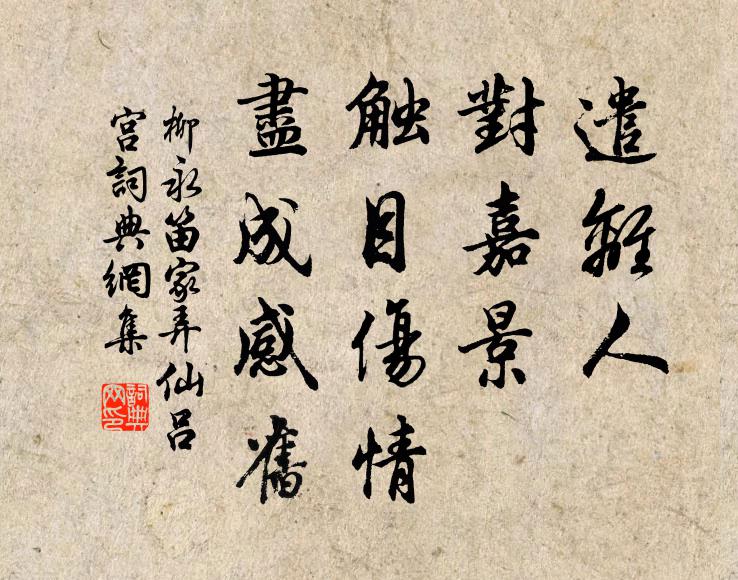 遣離人
對嘉景
触目傷情
盡成感舊
柳永笛家弄仙呂
宫詞典網集
詞典网印